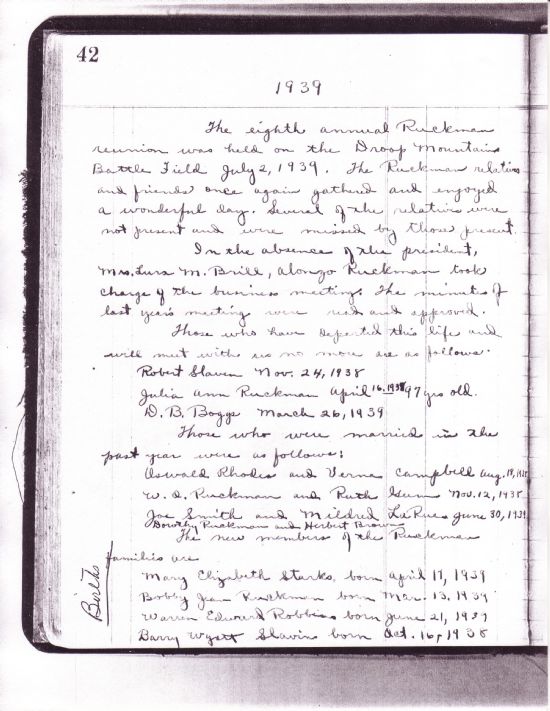 42
1939
The eighth annual Ruckman
reunion was held on the Droop Mountain
Battle Field July 2, 1939. The Ruckman relatives
and friends once again gatherd and enjoyed
a wonderful day. Several of the relatives were
not present and were missed by those present.
In the absence of the president,
Mrs. Lura M. Brill, Alonzo Ruckman took
charge of the business meeting. The minutes of
last year's meeting were read and approved.
Those who have departed this life and
will meet with us no more are as follows:
Robert Slaven Nov. 24, 1938
Julia Ann Ruckman April 16, 1939 97 yrs old.
D. B. Boggs March 26, 1939
Those who were married in the
past year were as follows:
Oswald Rhodes and Verne Campbell Aug. 19, 1938
W. A. Ruckman and Ruth Gum Nov. 12, 1938
Joe Smith and Mildred LaRue June 30, 1939
Dorothy Ruckman and Herbert Brown
The new members of the Ruckman
families are
Births
Mary Elizabeth Starks, born April 17, 1939
Bobby Jean Ruckman born Mar. 13, 1939
Warren Edward Robbins born June 21, 1939
Barry Wyett Slavin born Oct. 16, 1938